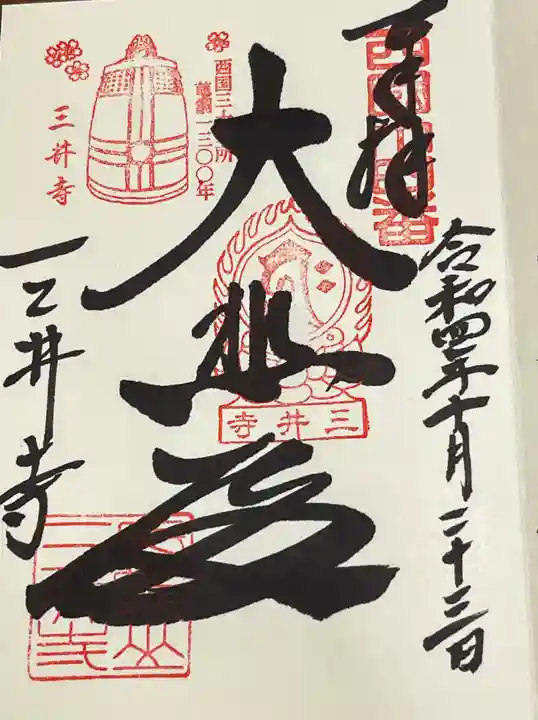 奉拝
西國十四番
令和四年十月二十三日
大悲殿
西国三十三所
草創一三〇〇年
三井寺
三井寺
三井寺